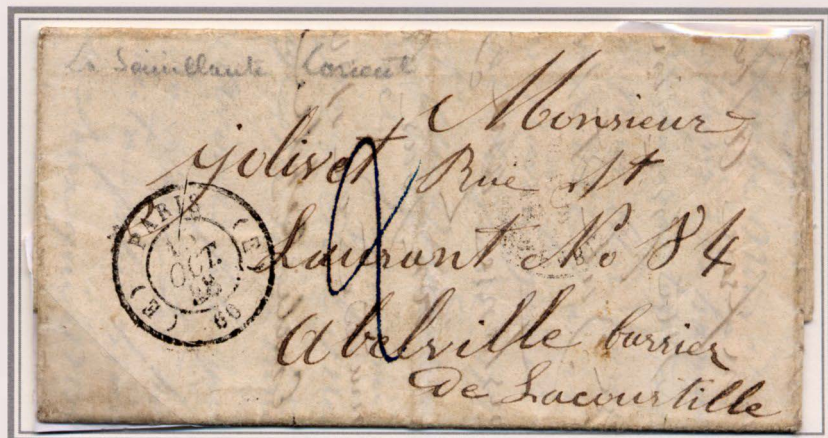 La Semillante (Lorient)
Monsieur
jolivet Rue St
Laurant No 84
abelville barrier
De Lacourtille
2
PARIS (E)
OCT.
(E) 60